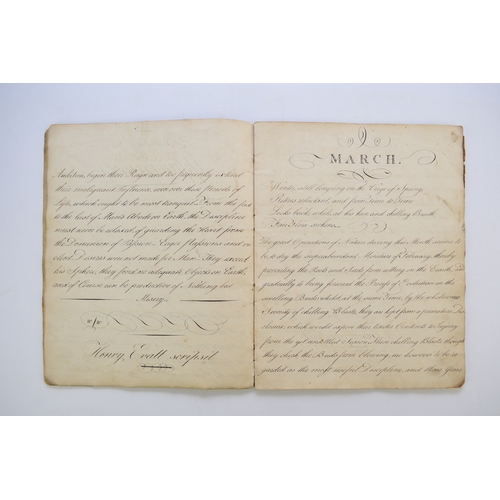 Ambition, begin their Reign and too frequently extend
their malignant Influence, even over those Periods of
Life, which ought to be most tranquil. From the first
to the last of Man's abode on Earth, the Discipline
must never be relaxed, of guarding the Heart from
the Dominion of Passion. Eager Passions and
Desires were not made for Man. They exceed
his Sphere, they find no adequate Objects on Earth
and of Course can be productive of Nothing but
Misery.
Henry Evatt scripsit
MARCH.
Winter, still lingering on the Verge of Spring,
Retires reluctant, and from Time to Time
Looks back, while at his keen and chilling Breath
Fair Flora sickens.
The great Operations of Nature during this Month seems
to be to dry the superabundant Moisture of February, thereby
preventing the Roots and Seeds from rotting in the Earth, and
gradually to bring forward the Process of Evolution in the
swelling Buds whilst at the same Time, by the wholesome
Severity of chilling Blasts, they are kept from a premature Dis
closure, which would expose their tender Contents to Injury
from the yet unsettled Season. These chilling Blasts though
they check the Buds from blowing, are however to be re
garded as the most useful Discipline, and those Years